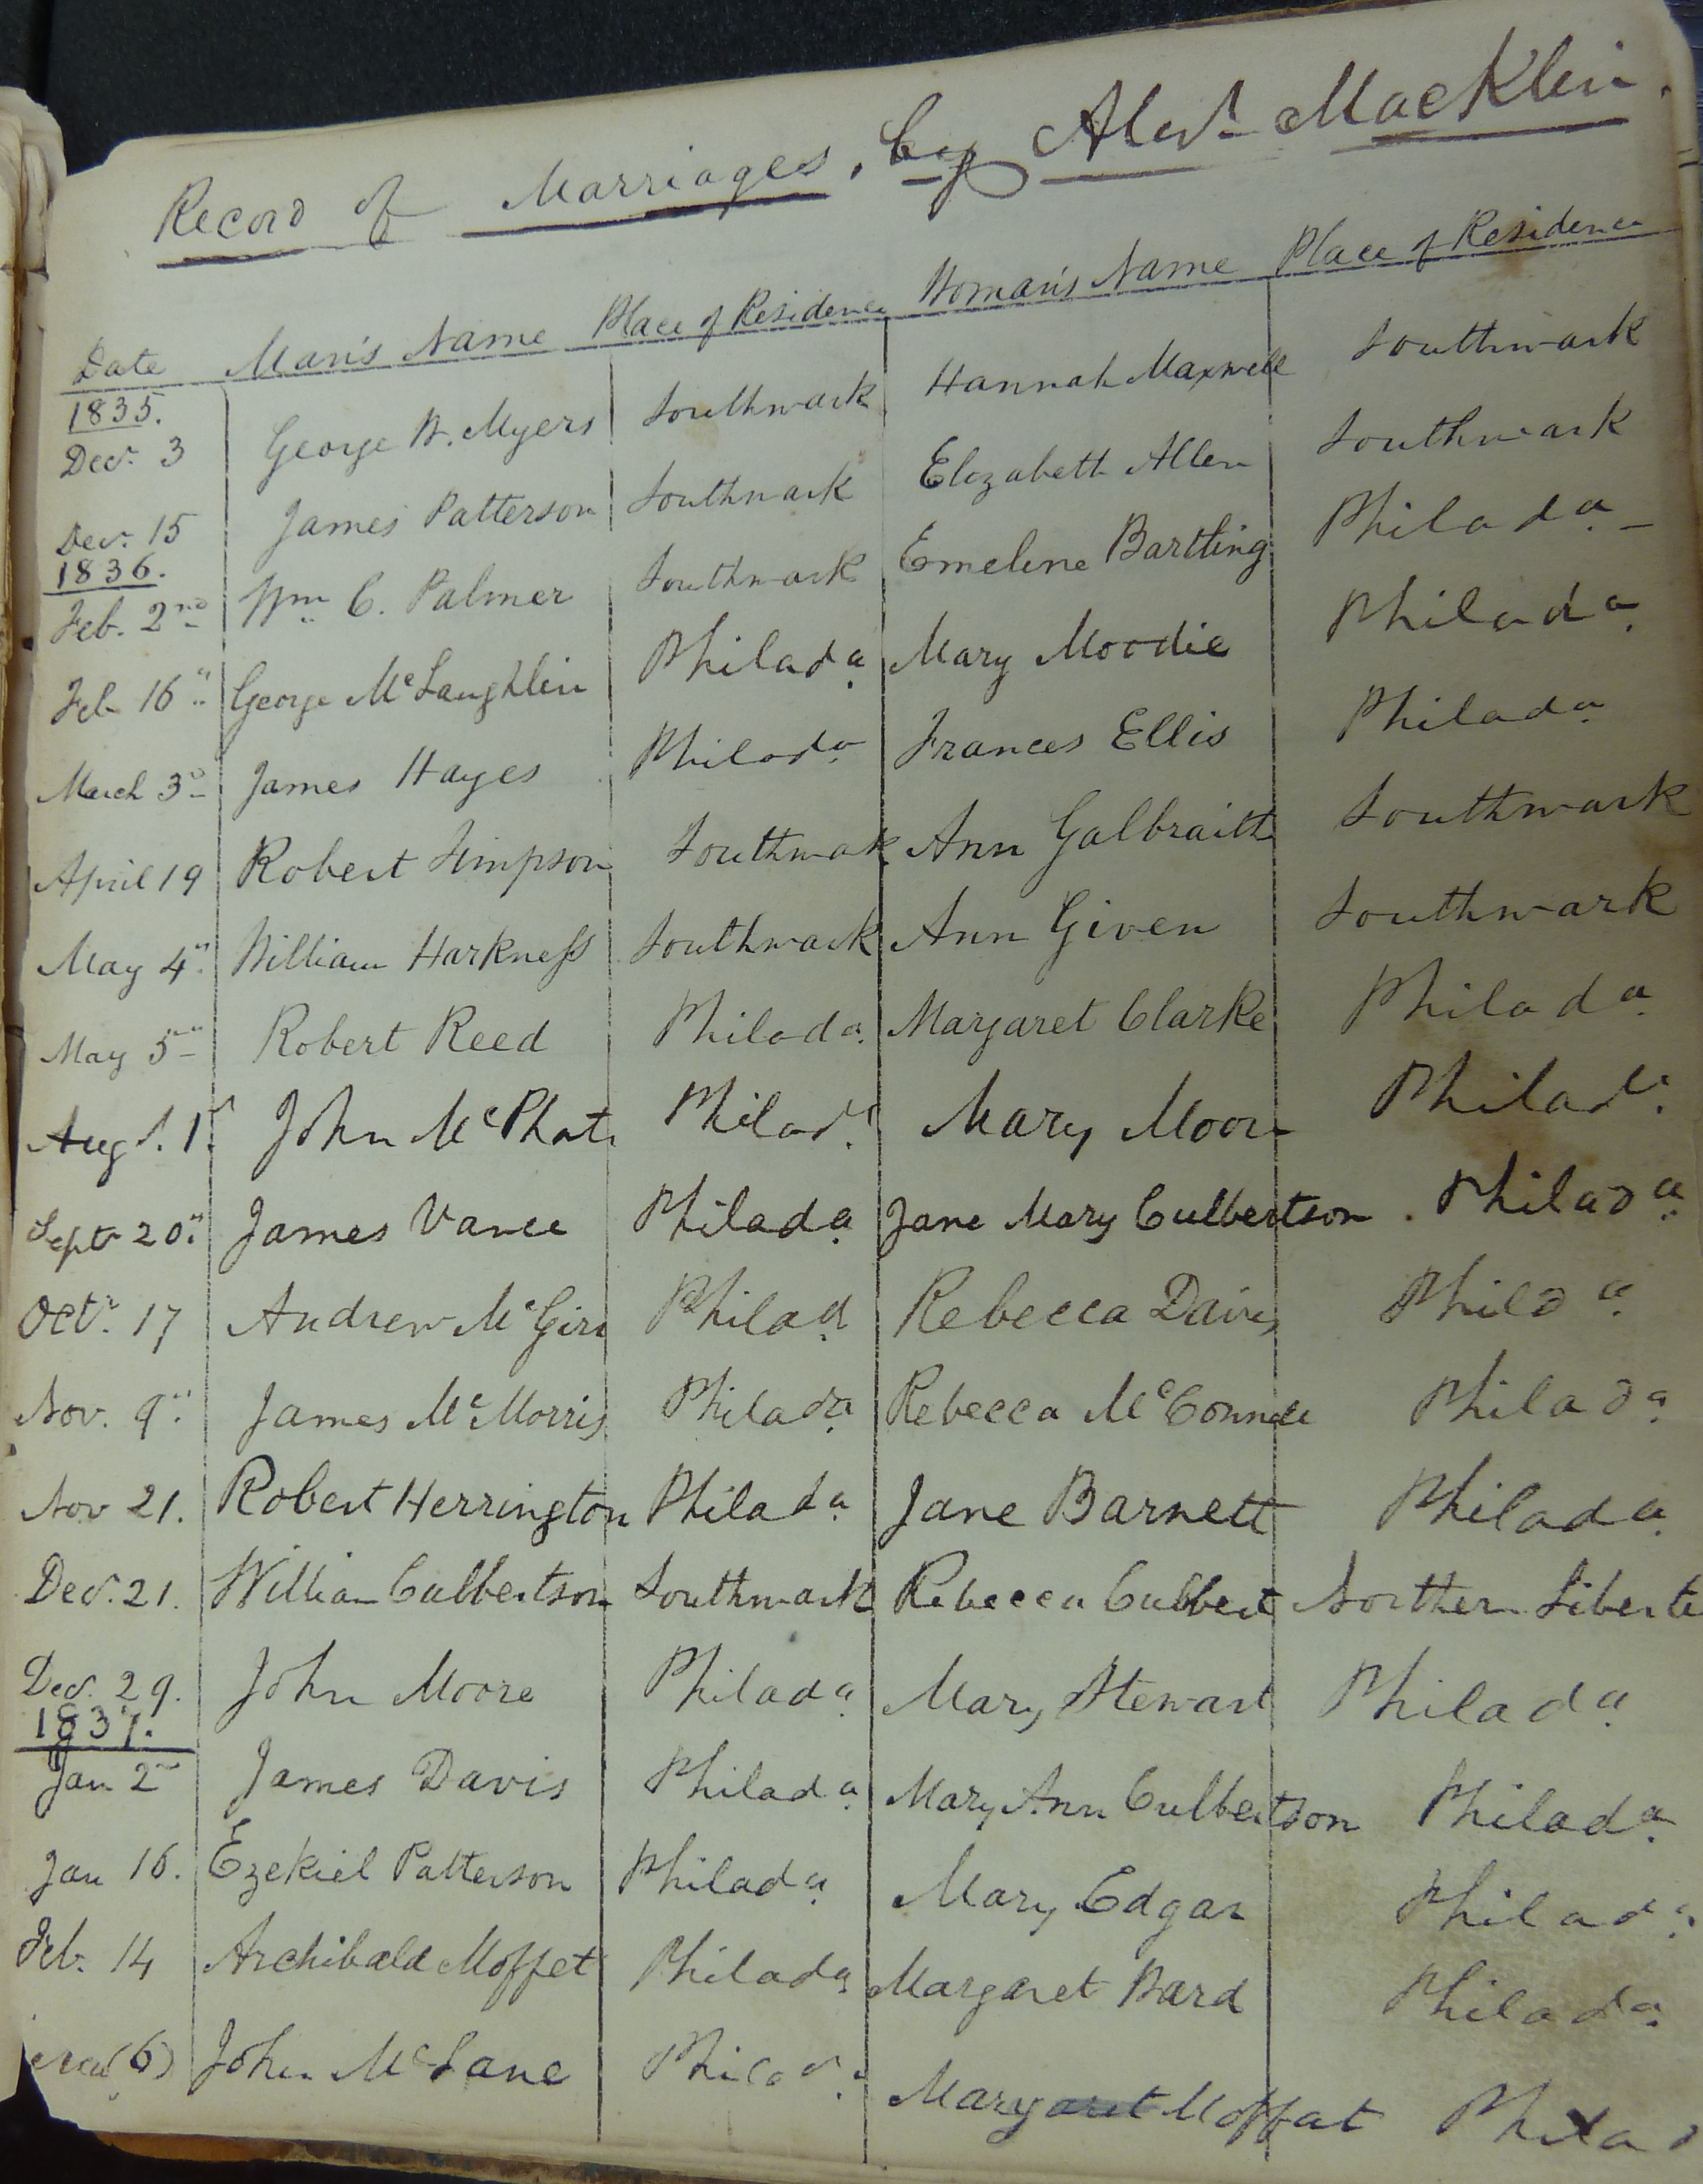 Record of Marriages, by Alexr MacKlin.
Date Man's Name Place of Residence Woman's Name Place of Residence
1835.
Decr. 3 George W. Myers Southwark Hannah Maxwell Southwark
Decr. 15 James Patterson Southwark Elizabeth Allen Southwark
1836.
Feb. 2nd Wm C. Palmer Southwark Emeline Bartling Philada
Feb 16" George McLaughlin Philada Mary Moodie Philada
March 3d James Hayes Philada Frances Ellis Philada
April 19 Robert Simpson Southwak Ann Galbraith Southwark
May 4" William Harkness Southwark Ann Given Southwark
May 5" Robert Reed Philada Margaret Clarke Philada
Augt. 1. John Philada Mary Moore Philada
Septr 20" James Vance Philada Jane Mary Culbertson Philada
Octr. 17 Andrew Philad Rebecca Philda
Nov. 9" James McMorris Philada Rebecca McConnell Philada
Nov 21. Robert Herrington Philada Jane Barnett Philada
Decr. 21. William Culbertson Southwark Rebecca Culbert Northern Liberte
Decr. 29. John Moore Philada Mary Stewart Philada
1837.
Jan 2d James Davis Philada Mary Ann Culbertson Philada
Jan 16. Ezekiel Patterson Philada Mary Edgar Philada
Feb. 14 Archibald Moffet Philada Margaret Bard Philada
John McLane Philada Margaret Moffat Philad